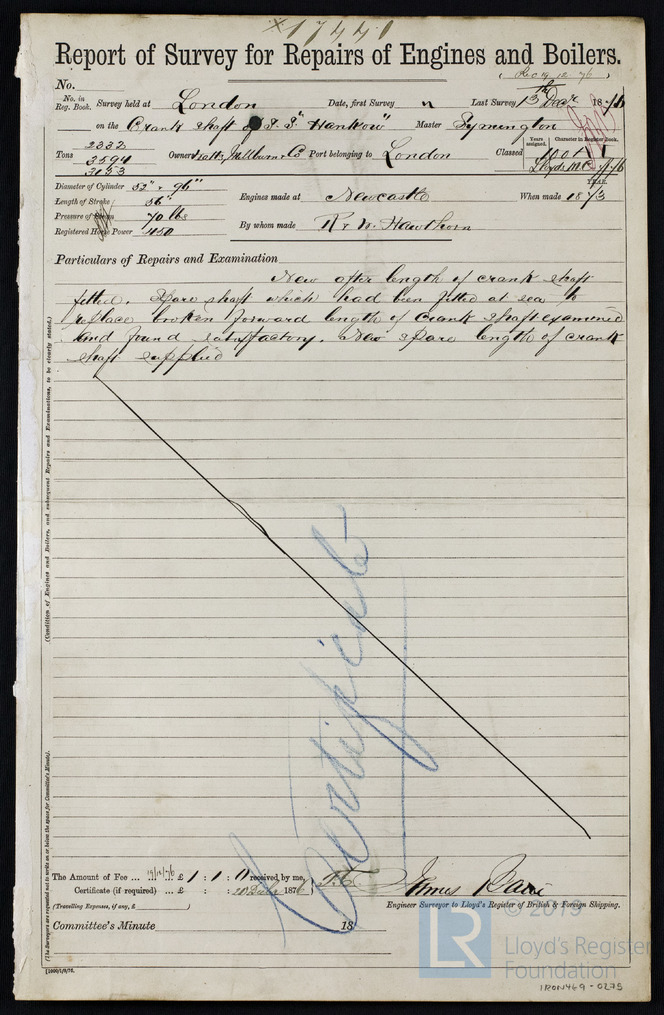 17440
Report of Survey for Repairs of Engines and Boilers.
(Rec 19.12.76)
No.
No. in Reg. Book. Survey held at London Date, first Survey " Last Survey 13th Decr 1876
on the Crank Shaft of S.S. "Hankow" Master Symington
Tons 2332 3594 3153 Owner Watts Milburn & Co Port belonging to London Classed Years assigned. Character in Register Book. 100A1 Lloyds MC 7/76
YEAR.
Diameter of Cylinder 52" & 96" Engines made at Newcastle When made 1873
Length of Stroke 56"
Pressure of Steam 70 lbs By whom made R & W. Hawthorn
Registered Horse Power 450
Particulars of Repairs and Examination
New after length of crank shaft
fitted. Spare shaft which had been fitted at sea to
replace broken forward length of crank shaft examined
and found satisfactory. New spare length of crank
shaft supplied
(Condition of Engines and Boilers, and subsequent Repairs and Examinations, to be clearly stated.)
Certificate
(The Surveyors are requested not to write on or below the space for Committee's Minute).
The Amount of Fee ... 19/12/76 £ 1 : 1 : 0 received by me,
Certificate (if required) ... £ : : 20 Decr 1876
(Travelling Expenses, if any, £ )
James
Engineer Surveyor to Lloyd's Register of British & Foreign Shipping.
Committee's Minute 18
LR © 2019
Lloyd's Register
Foundation
IRON469-0275